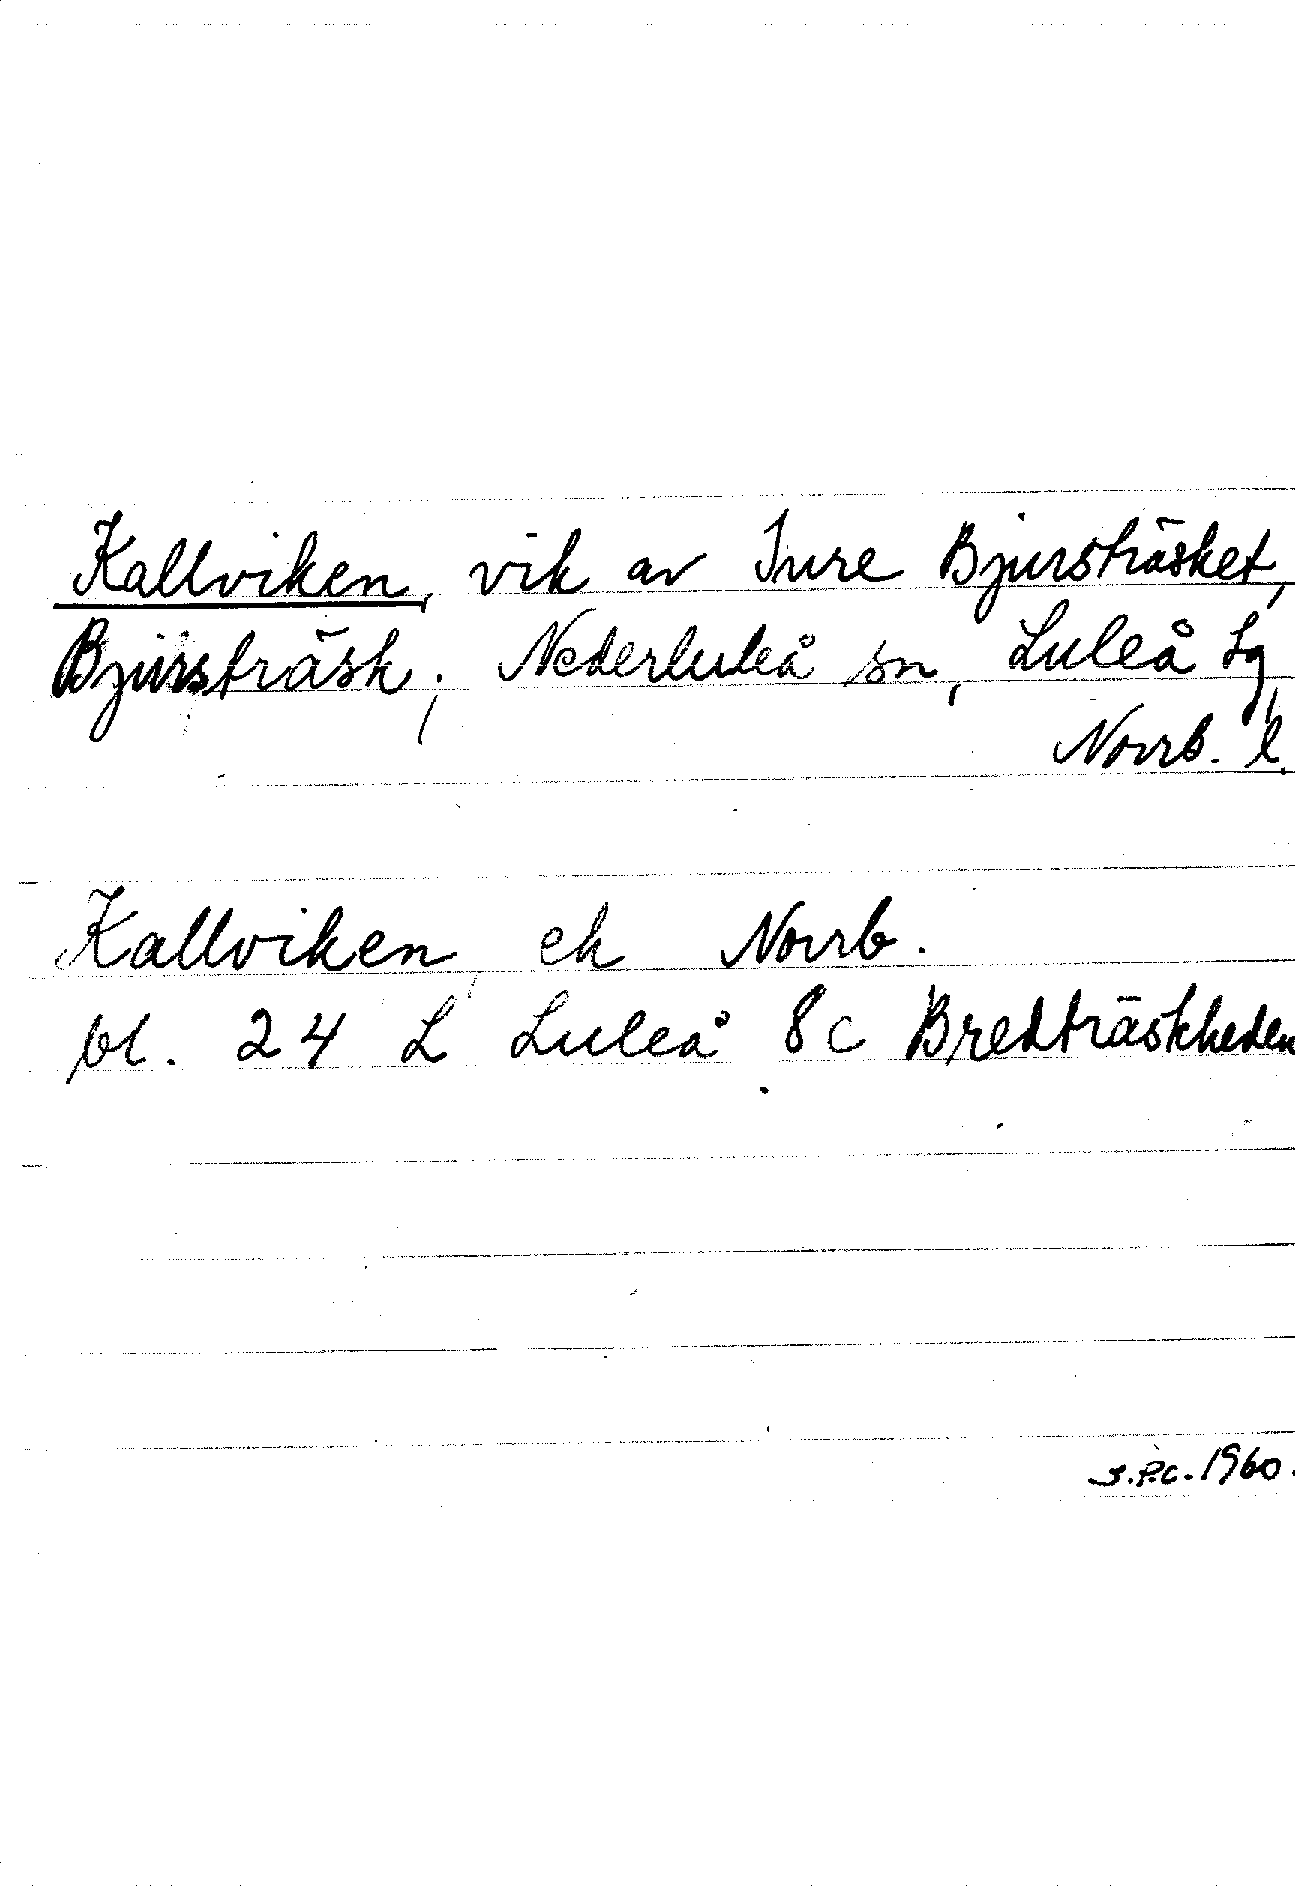 Kallviken, vik av Inre Bjursträsket,
Bjursträsk; Nederluleå sn, Luleå tg,
Norrb. l.
Kallviken, ek Norrb.
bl. 24 L Luleå 8c Bredträskheden
J.P.C. 1960.